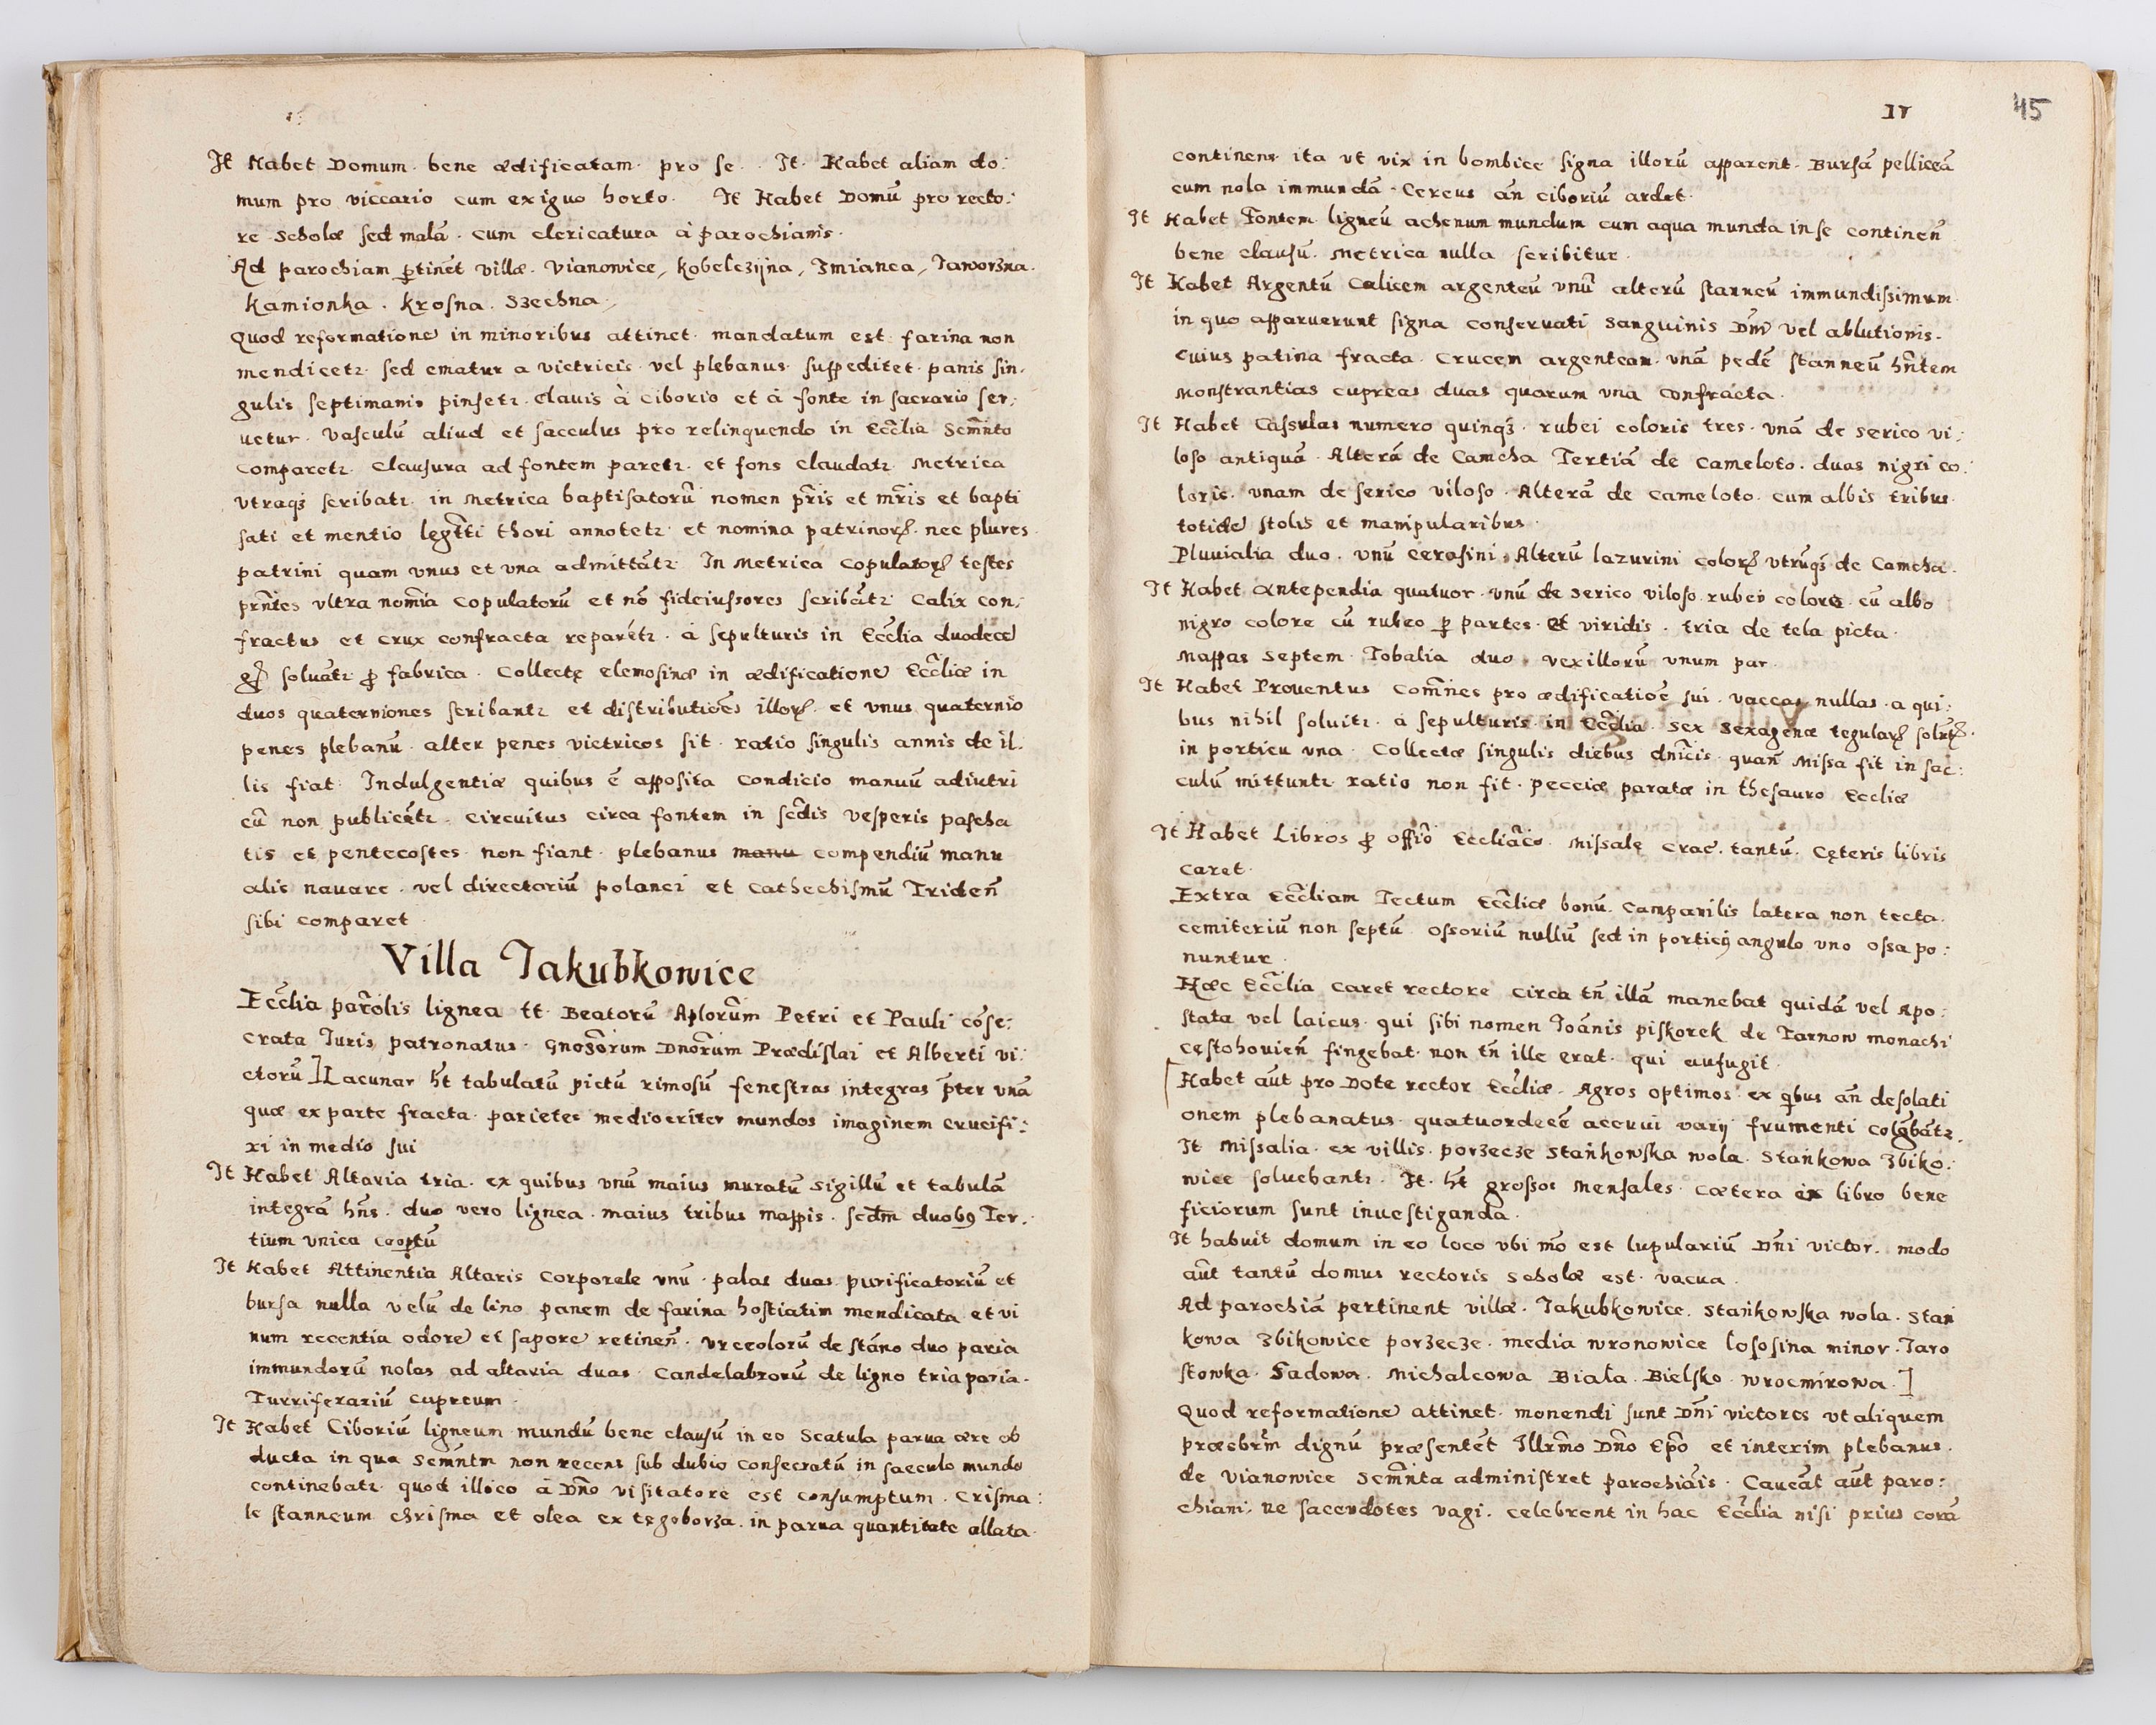 It Habet Domum bene ædificatam pro se. It Habet aliam do:
mum pro viccario cum exiguo horto. It Habet Domū pro recto:
re Scholæ sed malā. cum clericatura à parochianis.
Ad parochiam ptinēt villæ. Vianowice, Kobelczijna, Zmianca, Jaworzna.
Kamionka. Krosna. Szechna.
Quod reformatione in minoribus attinet. mandatum est farina non
mendicetr sed ematur a victricis vel plebanus suppeditet panis sin:
gulis septimanis pinsetr. Clavis à ciborio et à fonte in sacrario ser:
uetur. Vasculū aliud et sacculus pro relinquendo in Ecclia Scmnto
comparetr. Clausura ad fontem paretr. et fons claudatr. Metrica
vtraqз scribatr. in Metrica baptisatorū nomen pris et mris et bapti
sati et mentio legtti thori annotetr et nomina patrinorꝝ. nec plures
patrini quam vnus et vna admittātr. In Metrica copulatorꝝ testes
prntes vltra nomia copulatorū et nō fideiussores scribātr. Calix con:
fractus et crux confracta reparētr. à sepulturis in Ecclia duodece
gꝝ soluātr ꝓ fabrica. Collectę elemosinæ in ædificatione Eccliæ in
duos quaterniones scribantr et distributiōes illorꝝ. et vnus quaternio
penes plebanū. alter penes victricos sit. ratio singulis annis de il:
lis fiat. Indulgentiæ quibus ē apposita condicio manuū adiutri
cū non publicētr. Circuitus circa fontem in scdis vesperis pascha
tis et pentecostes non fiant. plebanus manu compendiū manu
alis nauare. vel directoriū polanci et Cathechismū Triden̄
sibi comparet.
Villa Jakubkowice
Ecclia parolis lignea tt. Beatorū Aplorum Petri et Pauli cōse:
crata Juris patronatus. Gnosorum Dnorum Prædislai et Alberti vi:
ctorū] Lacunar ht tabulatū pictū rimosū fenestras integras pter vnā
quæ ex parte fracta. parietes mediocriter mundos imaginem crucifi:
xi in medio sui
It Habet Altaria tria. ex quibus vnū maius muratū sigillū et tabulā
integrā hns. duo vero lignea. maius tribus mappis. scdm duobꝯ Ter:
tium vnica cooptū
It Habet Attinentia Altaris Corporale vnū. palas duas. purificatoriū et
bursa nulla velū de lino panem de farina hostiatim mendicata et vi
num recentia odore et sapore retinen̄. vrceolorū de stāno duo paria
immundorū nolas ad altaria duas. Candelabrorū de ligno tria paria.
Turriferariū cupreum.
It Habet Ciboriū ligneum mundū bene clausū in eo Scatula parua ære ob
ducta in qua Scmntm non recens sub dubio consecratū in sacculo mundo
continebatr. quod illico à Dno visitatore est consumptum. Crisma:
le stanneum chrisma et olea ex tęgoborza. in parua quantitate allata.
IV 45
continens ita vt vix in bombice signa illorū apparent. Bursā pelliceā
cum nola immundā. Cereus an̄ ciboriū ardet.
It Habet Fontem ligneū achenum mundum cum aqua munda in se continen̄
bene clausū. Metrica nulla scribitur.
It Habet Argentū Calicem argenteū vnū alterū stanneū immundissimum.
in quo apparuerunt signa conseruati Sanguinis Dni vel ablutionis.
cuius patina fracta. Crucem argenteam vnā pedē stanneū hntem
Monstrantias cupreas duas quarum vna confracta.
It Habet Cassulas numero quinqз. rubei coloris tres. vnā de serico vi:
loso antiquā. Alterā de Camcha Tertiā de Cameloto. duas nigri co:
loris. vnam de serico viloso. Alterā de cameloto. cum albis tribus
totide stolis et manipularibus.
Pluuialia duo. vnū cerasini, Alterū lazurini colorꝝ vtruqз de Camcha.
It Habet antependia quatuor. vnū de serico viloso rubeo colore cū albo
nigro colore cū rubeo ꝑ partes. et viridis. tria de tela picta.
Mappas septem. Tobalia duo. vexillorū vnum par.
It Habet Prouentus Comnes pro ædificatioē sui. vaccas nullas. a qui:
bus nihil soluitr. à sepulturis in Ecclia. sex sexagenæ tegularꝝ solutꝝ.
in porticu vna. Collectæ singulis diebus dnicis quan̄ missa fit in sac:
culū mittuntr. ratio non fit. pecciæ paratæ in thesauro Eccliæ
It Habet Libros ꝓ offio Eccliāco. Missalę Crac. tantū. Cęteris libris
caret.
Extra Eccliam Tectum Eccliæ bonū. Campanilis latera non tecta.
cemiteriū non septū. ossoriū nullū sed in porticy angulo vno ossa po:
nuntur.
Hæc Ecclia caret rectore circa tn̄ illā manebat quidā vel Apo:
stata vel laicus. qui sibi nomen Joānis piskorek de Tarnow monachi
cęstohouien̄ fingebat. non tn̄ ille erat. qui aufugit.
[Habet aūt pro Dote rector Eccliæ. Agros optimos ex qbus an̄ desolati
onem plebanatus. quatuordecē accrui varij frumenti colgbātr.
It Missalia. ex villis. porzecze Stańkowska wola. Stańkowa Zbiko:
wice soluebantr. It. ht grossos Mensales. Cætera ex libro bene
ficiorum sunt inuestiganda.
It habuit domum in eo loco vbi mō est lupulariū Dni victor. modo
aūt tantū domus rectoris Scholæ est. vacua.
Ad parochiā pertinent villæ. Jakubkowice. Stańkowska wola. Stań
kowa Zbikowice porzecze. media wronowice lososina minor. Jaro
stowka. Sadowa. Michalcowa Biała. Bielsko. wrocmirowa.]
Quod reformatione attinet. monendi sunt Dni victores vt aliquem
præsbrm dignū præsentēt Illrmo Dno Epo et interim plebanus.
de Vianowice Scmnta administret parochiāis. Caueāt aūt paro:
chiani, ne sacerdotes vagi. celebrent in hac Ecclia nisi prius corā